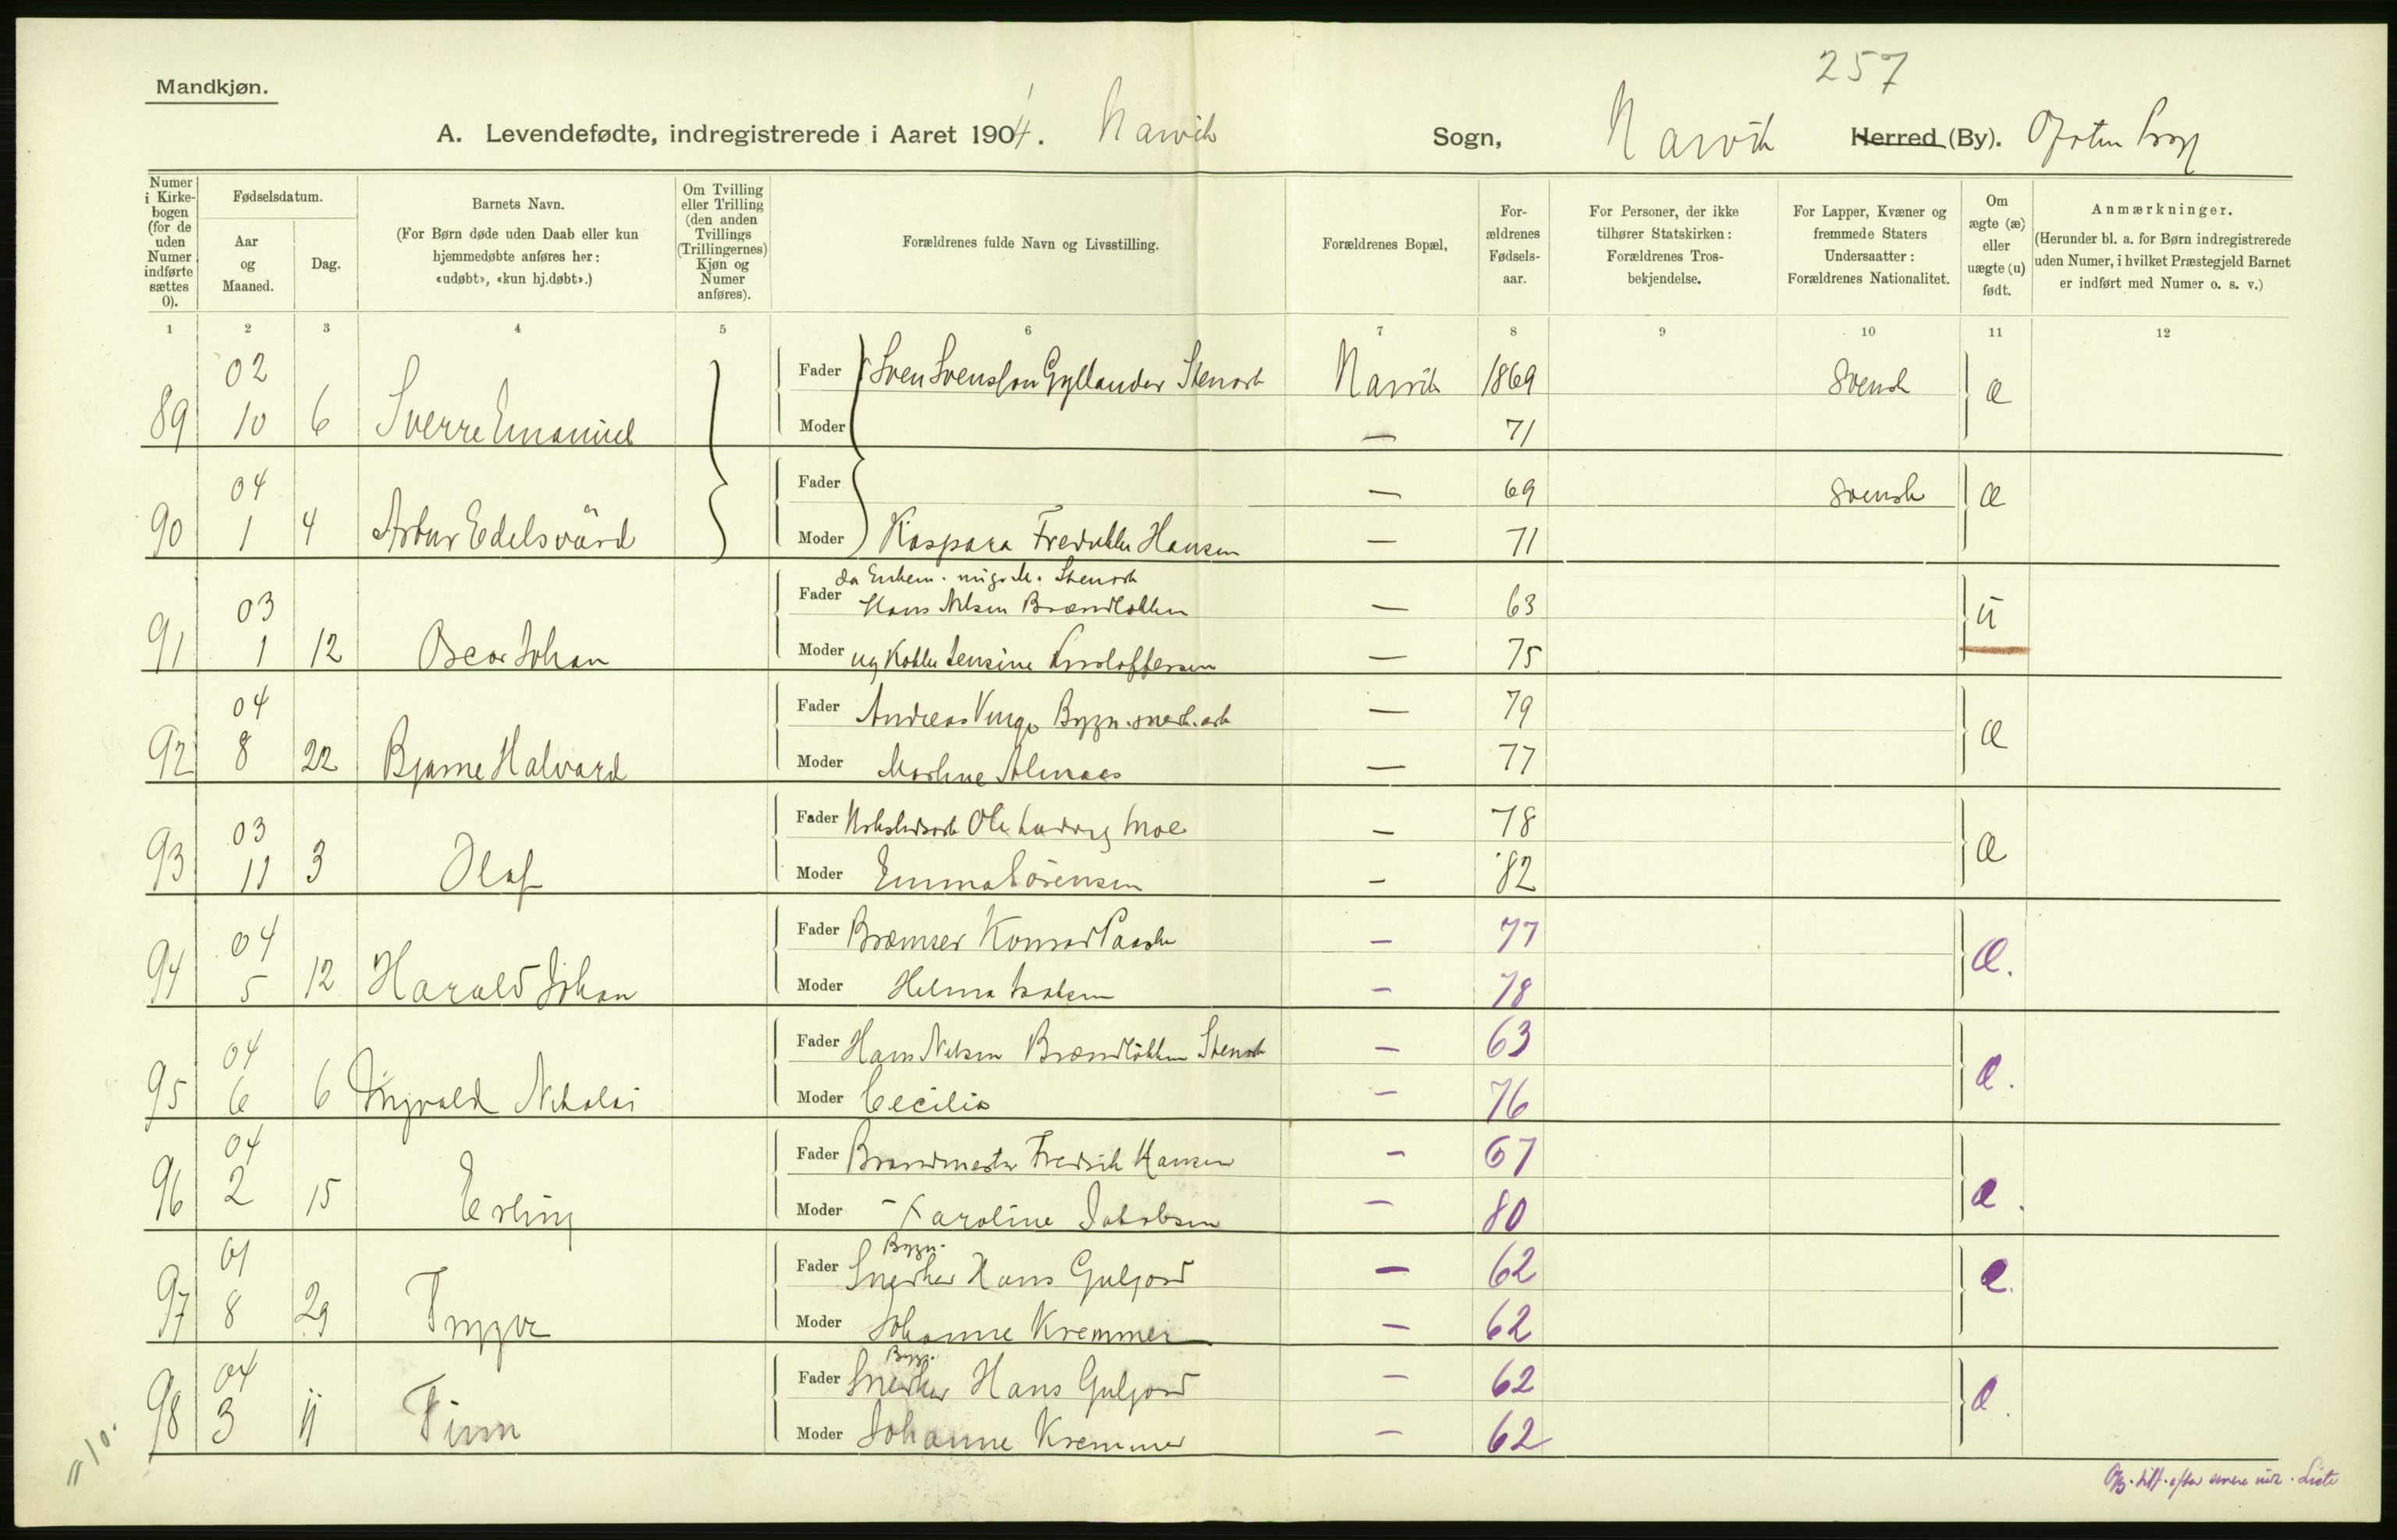 257
Mandkjøn.
A. Levendefødte, indregistrerede i Aaret 1904. Narvik Sogn, Narvik Herred (By). Ofoten
Numer i Kirkebogen (for de uden Numer indførte sættes 0).
Fødselsdatum.
Aar og Maaned.
Dag.
Barnets Navn.
(For Børn døde uden Daab eller kun hjemmedøbte anføres her: «udøbt», «kun hj.døbt».)
Om Tvilling eller Trilling (den anden Tvillings (Trillingernes) Kjøn og Numer anføres).
Forældrenes fulde Navn og Livsstilling.
Forældrenes Bopæl,
Forældrenes Fødselsaar.
For Personer, der ikke tilhører Statskirken: Forældrenes Trosbekjendelse.
For Lapper, Kvæner og fremmede Staters Undersaatter: Forældrenes Nationalitet.
Om ægte (æ) eller uægte (u) født.
Anmærkninger.
(Herunder bl. a. for Børn indregistrerede uden Numer, i hvilket Præstegjeld Barnet er indført med Numer o. s. v.)
1 2 3 4 5 6 7 8 9 10 11 12
89 02 10 6 Sverre Emanuel Fader Sven Svensson Gyllander Stenarb Narvik 1869 Svensk æ
Moder — 71
90 04 1 4 Artur Edelsvärd Fader — 69 svensk æ
Moder Kaspara Fredrikke Hansen — 71
91 03 1 12 Oscar Johan Fader Hans Nilsen Brændløkken — 63 u
Stenarb
Moder Jensine Kristoffersen — 75
92 04 8 22 Bjarne Halvard Fader Andreas — 79 æ
Moder — 77
93 03 11 3 Olaf Fader Ole Ludvig Moe — 78 æ
Moder Emma Sörensen — 82
94 04 5 12 Harald Johan Fader Bræmser Konrad — 77 æ.
Moder Helma — 78
95 04 6 6 Nikolai Fader Hans Nilsen Brændløkken Stenarb — 63 æ.
Moder Cecilia — 76
96 04 2 15 Erling Fader Brandmester Fredrik Hansen — 67 æ.
Moder Karoline Jakobsen — 80
97 01 8 29 Trygve Fader Bygn. Snedker Hans Guljord — 62 æ.
Moder Johanne Kremmer — 62
98 04 3 11 Finn Fader Bygn. Snedker Hans Guljord — 62 æ.
Moder Johanne Kremmer — 62